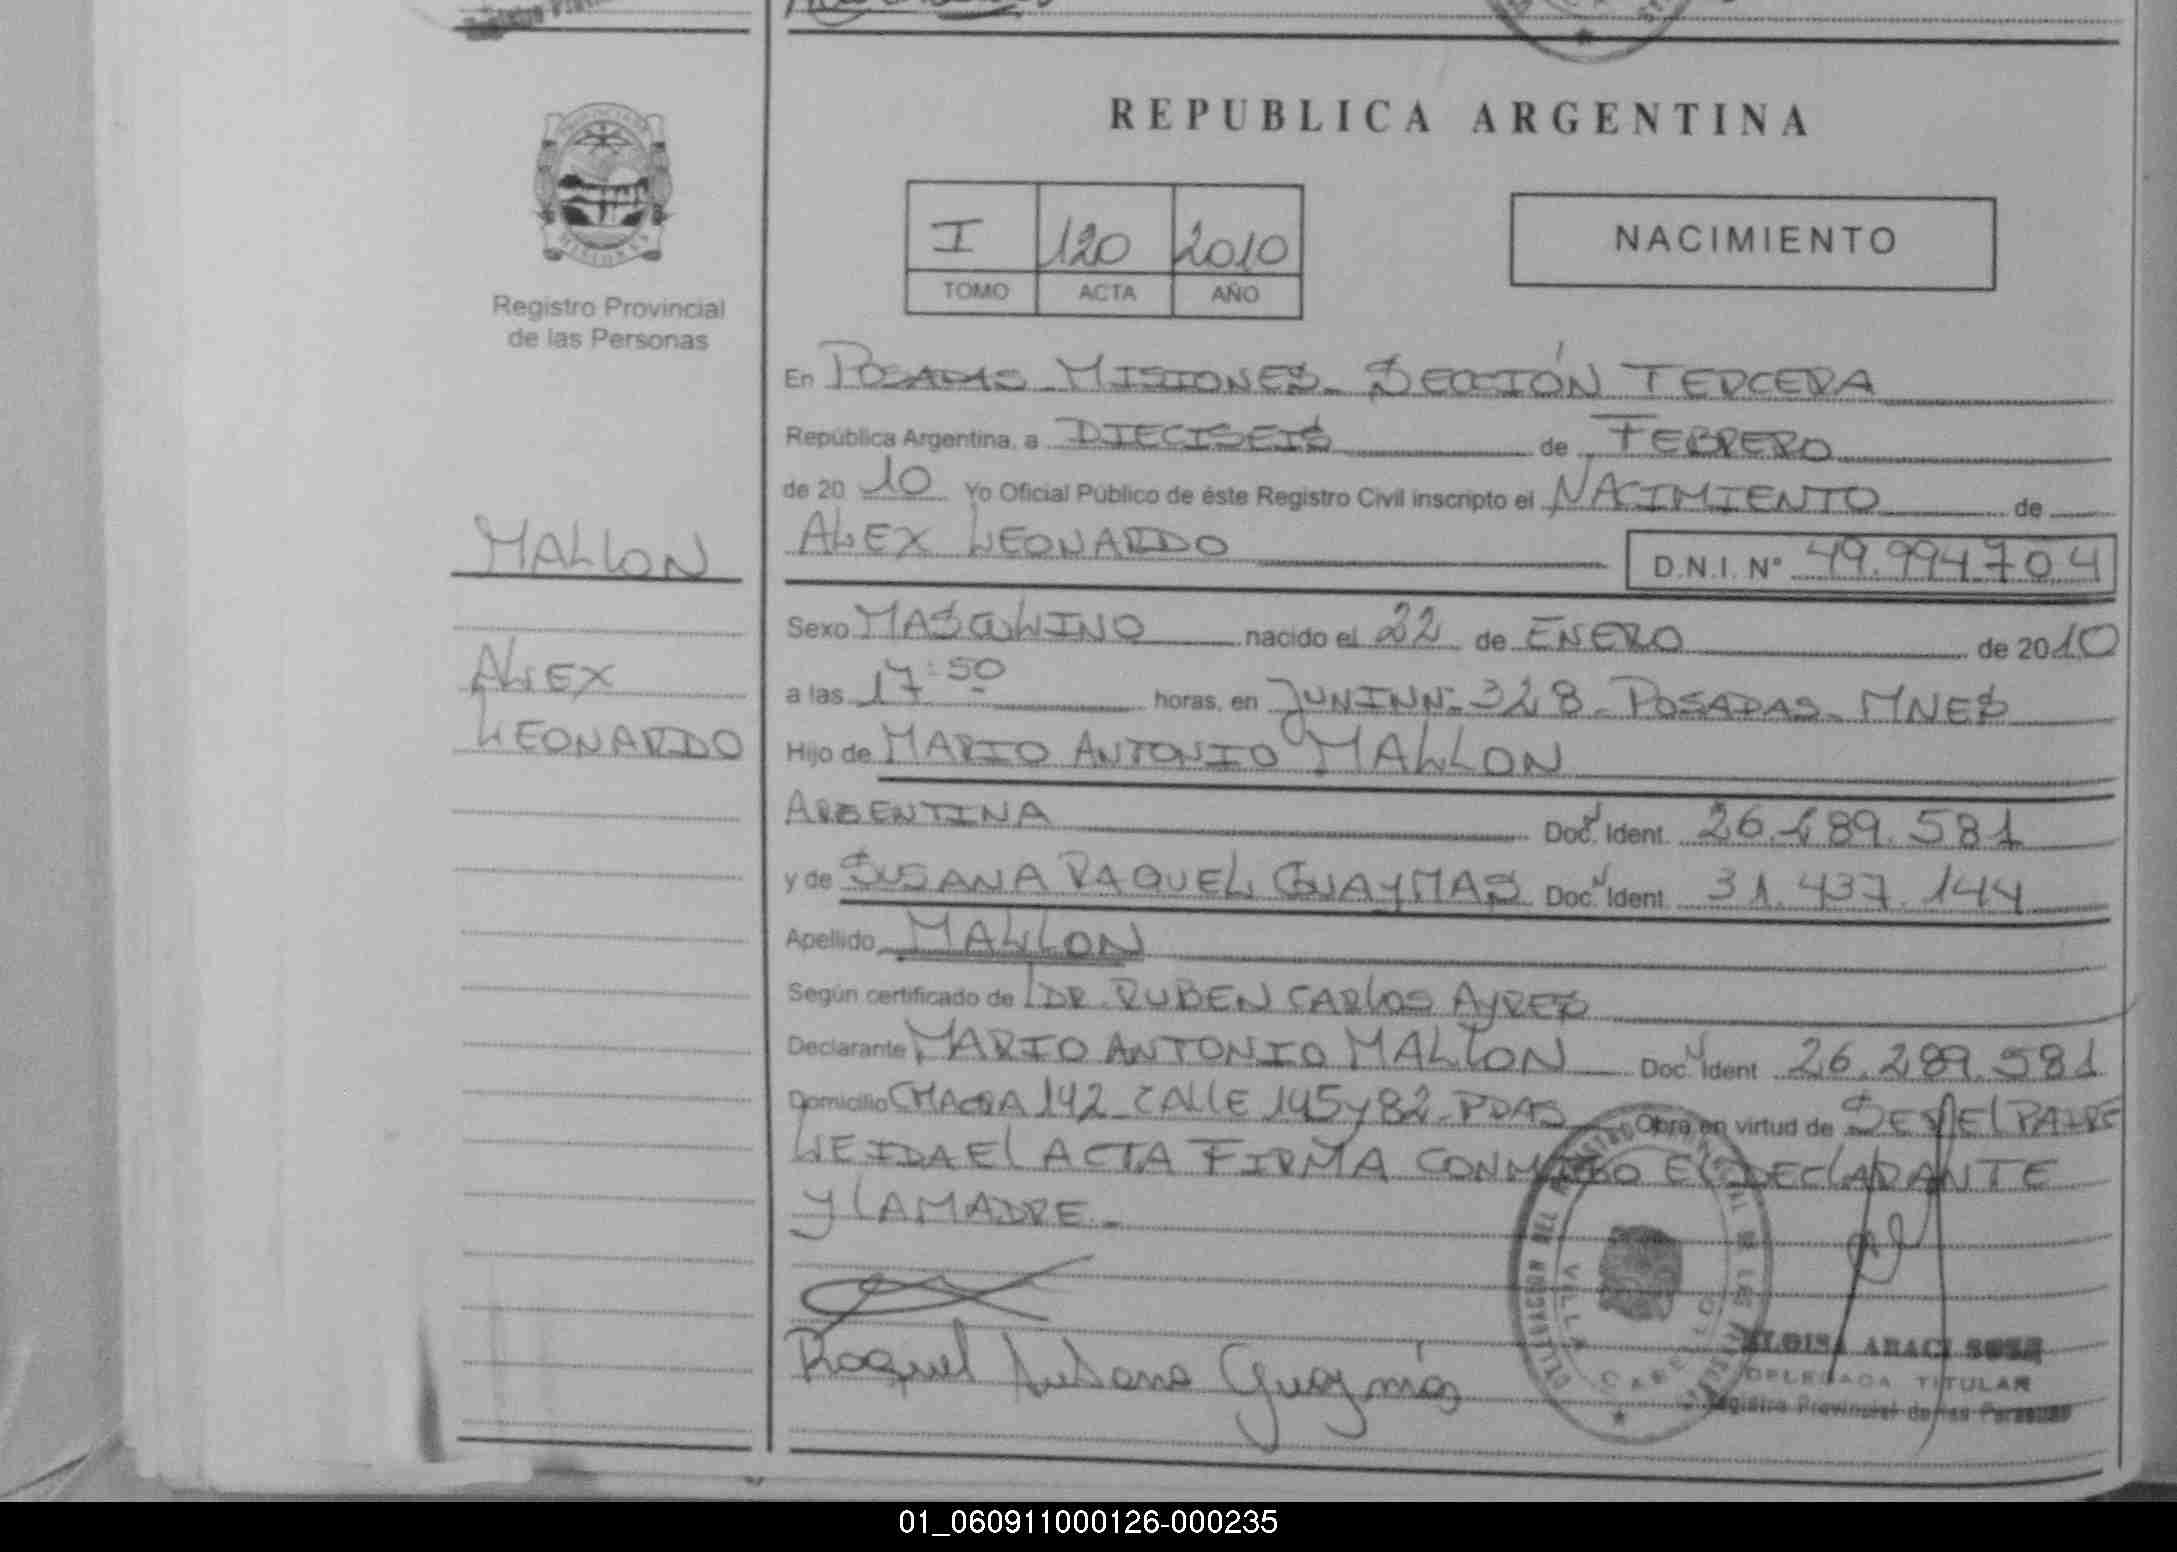 REPUBLICA ARGENTINA
I 120 2010
TOMO ACTA AÑO
NACIMIENTO
Registro Provincial
de las Personas
En POSADAS MISIONES - SECCIÓN TERCERA
República Argentina, a DIECISEIS de FEBRERO
de 20 10 Yo Oficial Público de éste Registro Civil inscripto el NACIMIENTO de
MALLON
ALEX LEONARDO D.N.I. N° 49.994704
Sexo MASCULINO nacido el 22 de ENERO de 2010
ALEX
LEONARDO
a las 17:50 horas, en JUNIN N- 328 - POSADAS - MNES
Hijo de MARIO ANTONIO MALLON
ARGENTINA Doc. Ident. 26.289.581
y de SUSANA RAQUEL GUAYMAS Doc. Ident. 31.437.144
Apellido MALLON
Según certificado de DR. RUBEN CARLOS AYRES
Declarante MARIO ANTONIO MALLON Doc. Ident 26.289.581
Domicilio CHACRA 142 - CALLE 145 y 82 - PDAS Obra en virtud de SER EL PADRE
LEIDA EL ACTA FIRMA CONMIGO EL DECLARANTE
Y LA MADRE -
Raquel Susana Guaymás
VILLA CABELLO
DELEGADA TITULAR
Registro Provincial de las Personas
01_060911000126-000235